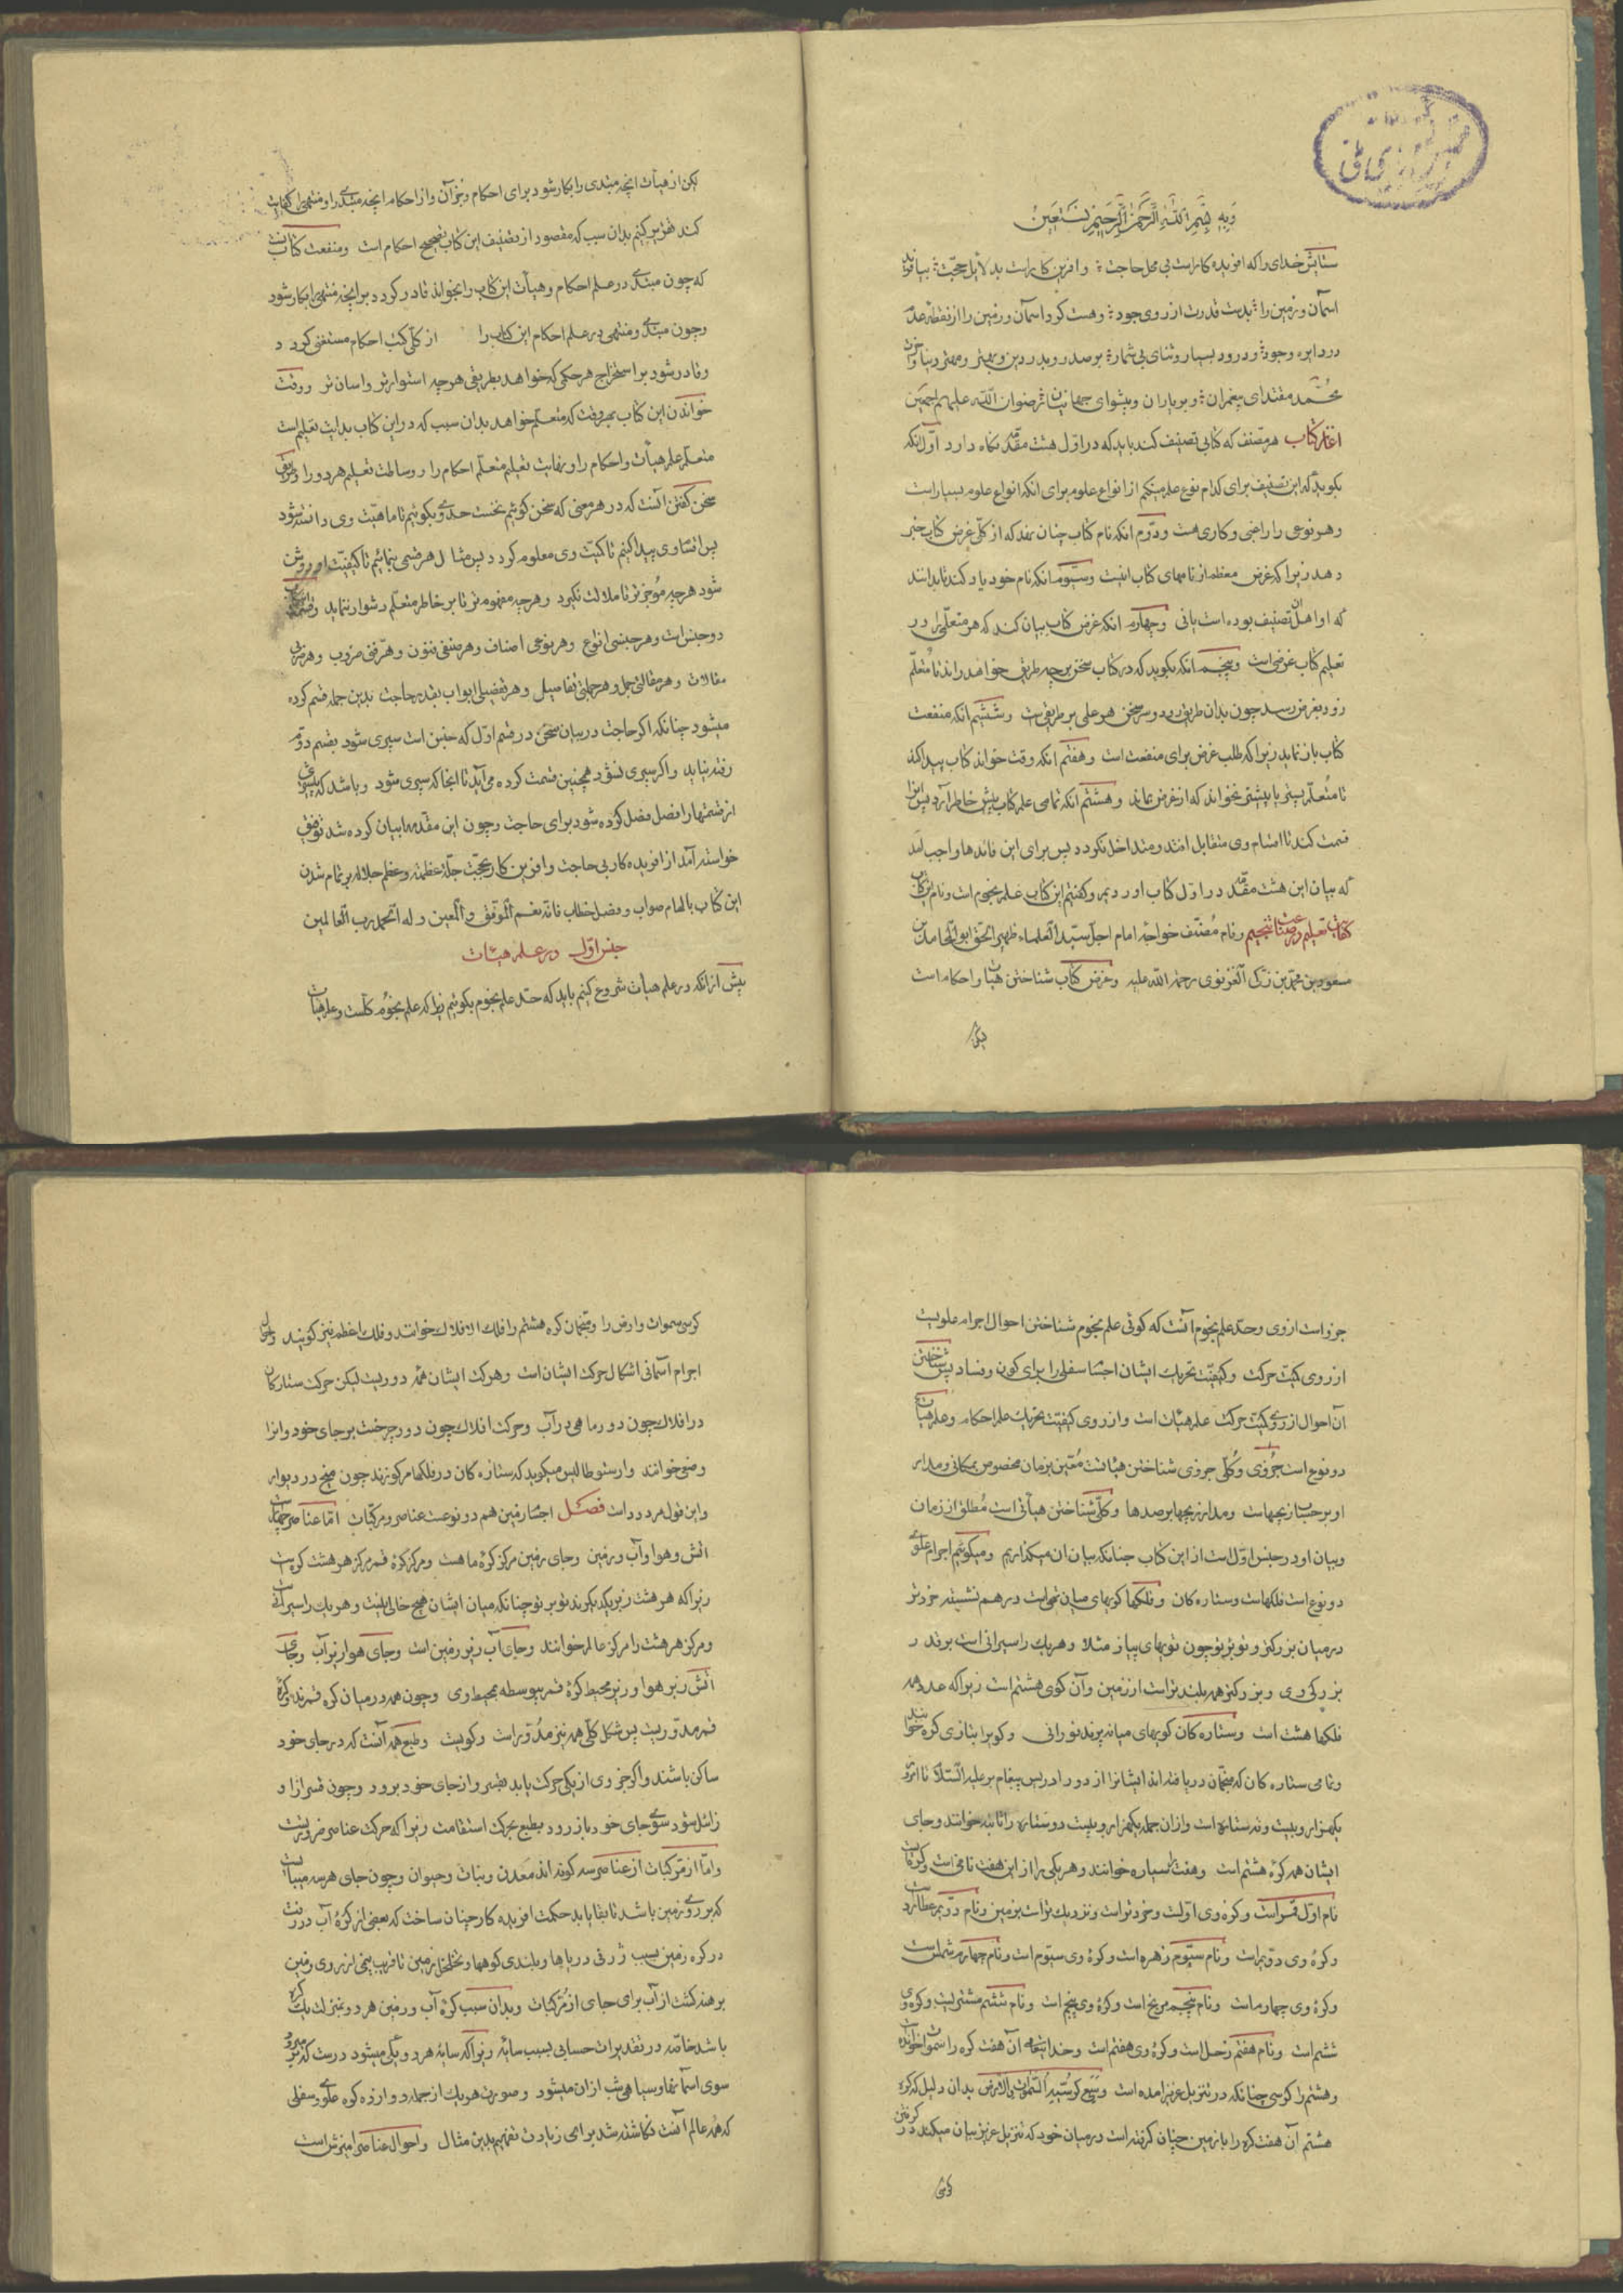 وبه بسم الله الرحمن الرحیم نستعین
ستایش خدای را که افریده کار است بی محل حاجت و افرین کار است بدلایل حجت
اسمان و زمین را بدست قدرت از روی جود و هست کرد اسمان و زمین را از نقطه عدم
در دایره وجود و درود بسیار و ثنای بی شمار بر صدر و بدر دین و مهتر و بهتر دنیا و
محمد مقتدای پیغمبران و بر یاران و پیشوای جهانیان رضوان الله علیهم اجمعین
اغاز کتاب هر مصنف که کتابی تصنیف کند باید که در اول هشت مقدمه نگاه دارد اول انکه
بکوید که این تصنیف برای کدام نوع علم میکنم از انواع علوم برای انکه انواع علوم بسیار است
و هر نوعی را راغبی و کاری هست و دوم انکه نام کتاب چنان نهد که از کلی غرض کتاب خبر
دهد زیرا که غرض معظم از نامهای کتاب اینست و سیوم انکه نام خود یاد کند تا بدانند
که او اهل ان تصنیف بوده است یا نی و چهارم انکه غرض کتاب بیان کند که هر متعلمی را در
تعلیم کتاب غرضی است و پنجم انکه بکوید که در کتاب سخن بر چه طریق خواهد راند تا متعلم
زود بغرض رسد چون بدان طریق رود و سر سخن هر علمی بر طریقی است و ششم انکه منفعت
کتاب باز نماید زیرا که طلب غرض برای منفعت است و هفتم انکه وقت خواند کتاب پیدا کند
تا متعلم پیش یا پیشتر نخواند که از غرض بماند و هشتم انکه تمامی علم کتاب پیش خاطر ارد پس انرا
قسمت کند تا اقسام وی متقابل افتد و متداخل نکردد پس برای این فایدها واجب امد
که بیان این هشت مقدمه در اول کتاب اوردیم و کفتیم این کتاب علم نجوم است و نام این کتاب
کفایت تعلیم در صناعت تنجیم و نام مصنف خواجه امام اجل سید العلماء ظهیر الحق ابو المحامد بن
مسعود بن محمد بن زکی الغزنوی رحمة الله علیه و غرض کتاب شناختن هیات و احکام است
لیکن
لیکن از هیات انچه مبتدی را بکار شود برای احکام و بجز آن و از احکام انچه مبتدی را و منتهی را کفایت
کند تقریر کنیم بدان سبب که مقصود از تصنیف این کتاب تصحیح احکام است و منفعت کتاب انست
که چون مبتدی در علم احکام و هیات این کتاب را بخواند قادر کردد بر انچه منتهی را بکار شود
و چون مبتدی و منتهی در علم احکام این کتاب را از کل کتب احکام مستغنی کردد
و قادر شود بر استخراج هر حکمی که خواهد بطریقی هر چه استوارتر و اسان تر و وقت
خواندن این کتاب هر وقت که متعلم خواهد بدان سبب که در این کتاب بدایت تعلیم است
متعلم علم هیات و احکام را و نهایت تعلیم متعلم احکام را و وسالت تعلیم هر دو را و طریق
سخن کفتن انست که در هر معنی که سخن کوئیم نخست حد وی بکوئیم تا ماهیت وی دانسته شود
پس اقسام وی پیدا کنیم تا کمیت وی معلوم کردد پس مثال هر قسمی بنمائیم تا کیفیت او روشن
شود هر چه موجزتر تا ملالت نکیرد و هر چه مفهوم تر تا بر خاطر متعلم دشوار ننماید و قسمت این کتاب
دو جنس است و هر جنسی انواع و هر نوعی اصناف و هر صنفی فنون و هر فنی ضروب و هر ضربی
مقالات و هر مقالتی جمل و هر جملتی تفاصیل و هر تفصیلی ابواب بقدر حاجت بدین جمله قسم کرده
میشود چنانکه اکر حاجت در بیان سخن در قسم اول که جنس است سپری شود بقسم دوم
رفته نیاید و اکر سپری نشود همچنین قسمت کرده می آید تا انجا که سپری شود و باشد که بیشتری
از قسمتها را فصل فصل کرده شود برای حاجت و چون این مقدمها بیان کرده شد توفیق
خواسته آمد از افریده کار بی حاجت و افرین کار بحجت جلت عظمته و عظم جلاله بر تمام شدن
این کتاب بالهام صواب و فصل خطاب فانه نعم الموفق و المعین و له الحمد رب العالمین
جنس اول در علم هیئات
پیش از انکه در علم هیات شروع کنیم باید که حد علم نجوم بکوئیم زیرا که علم نجوم کلست و علم هیات
جزو است از وی و حد علم نجوم آنست که کوئی علم نجوم شناختن احوال اجرام علویست
از روی کمیت حرکت و کیفیت تحریک ایشان اجسام سفلی را برای کون و فساد پس شناختن
آن احوال از روی کمیت حرکت علم هیئات است و از روی کیفیت تحریک علم احکام و علم هیات
دو نوع است جزوی و کلی جزوی شناختن هیئاتست معین بزمان مخصوص بمکانی و مدار
او بر حساب زیجهاست و مدار زیجها برصدها و کلی شناختن هیأتی است مطلق از زمان
و بیان او در جنس اول است از این کتاب چنانکه بیان ان میکذاریم و میکوئیم اجرام علوی
دو نوع است فلکهاست و ستاره کان و فلکها کویهای میان تهی است در هم نشسته خردتر
در میان بزرکتر و تو بر تو چون تویهای پیاز مثلا و هر یک را سیرانی است بر قدر
بزرکی وی و بزرکتر همه بلندتر است از زمین و آن کوی هشتم است زیرا که عدد همه
فلکها هشت است و ستاره کان کویهای میانه پرند نورانی و کوی را بتازی کره خوانند
و تمامی ستاره کان که منجمان دریافته اند ایشانرا از دور ادریس پیغامبر علیه السلام تا امروز
یکهزار و بیست و نه ستاره است و از ان جمله یکهزار و بیست و دو ستاره را ثابته خوانند و جای
ایشان همه کره هشتم است و هفت را سیاره خوانند و هر یکی را از این هفت نامی است و کره ایست
نام اول قمر است و کره وی اولست و خردتر است و نزدیک تر است بزمین و نام دویم عطارد
و کره وی دویم است و نام سیوم زهره است و کره وی سیوم است و نام چهارم شمس است
و کره وی چهارم است و نام پنجم مریخ است و کره وی پنجم است و نام ششم مشتریست و کره وی
ششم است و نام هفتم زحل است و کره وی هفتم است و خدایتعالی آن هفت کره را سموات خوانده است
و هشتم را کرسی چنانکه در تنزیل عزیز امده است وسع کرسیه السموات و الارض بدان دلیل که کره
هشتم آن هفت کره را با زمین چنان کرفته است در میان خود که تنزیل عزیز بیان میکند در کرفتن
کرسی
کرسی سموات و ارض را و منجمان کره هشتم را فلک الافلاک خوانند و فلک اعظم نیز کویند و
اجرام آسمانی اشکال حرکت ایشان است و حرکت ایشان همه دوریست لیکن حرکت ستارکان
در افلاک چون دور ماهی در آب و حرکت افلاک چون دور چرخست بر جای خود و انرا
وضعی خوانند و ارسطوطالیس میکوید که ستاره کان در فلکها مرکوزند چون میخ در دیوار
و این قول مردود است فصل اجسام زمین هم دو نوعست عناصر و مرکبات اما عناصر چهار است
اتش و هوا و آب و زمین و جای زمین مرکز کره ما هست و مرکز کره قمر مرکز هر هشت کره است
زیرا که هر هشت زیر یکدیکرند تو بر تو چنانکه میان ایشان هیچ خالی نیست و هر یک را سیرانست
و مرکز هر هشت را مرکز عالم خوانند و جای آب زبر زمین است و جای هوا زبر آب و جای
اتش زبر هوا و زیر محیط کره قمر پیوسطه بمحیط وی و چون همه در میان کره قمرند و کره
قمر مدوریست پس شکل کلی همه نیز مدور است و کویست و طبع همه آنست که در جای خود
ساکن باشند و اکر جزوی از یکی حرکت یابد بقسر و از جای خود برود و چون قسر از او
زائل شود سوی جای خود باز رود بطبع بحرکت استقامت زیرا که حرکت عناصر ضروریست
و اما از مرکبات از عناصر سه کونه اند معدن و نبات و حیوان و چون جای هر سه میبایست
که بر روی زمین باشد تا بقا یابد حکمت افریده کار چنان ساخت که بعضی از کره آب در رفت
در کره زمین بسبب ژرفی دریاها و بلندی کوهها و تخلخل زمین تا قریب نیمی از روی زمین
برهنه کشت از آب برای جای از مرکبات و بدان سبب کره آب و زمین هر دو بمنزلت یک کره
باشد خاصه در تقدیرات حسابی بسبب سایه زیرا که سایه هر دو یکی میشود درست که
سوی اسمانها و سیاهی شب از ان میشود و صورت هر یک از جمله دوازده کره علوی و سفلی
که همه عالم آنست نکاشته شد برای زیادت تفهیم بدین مثال و احوال عناصر امیزش است